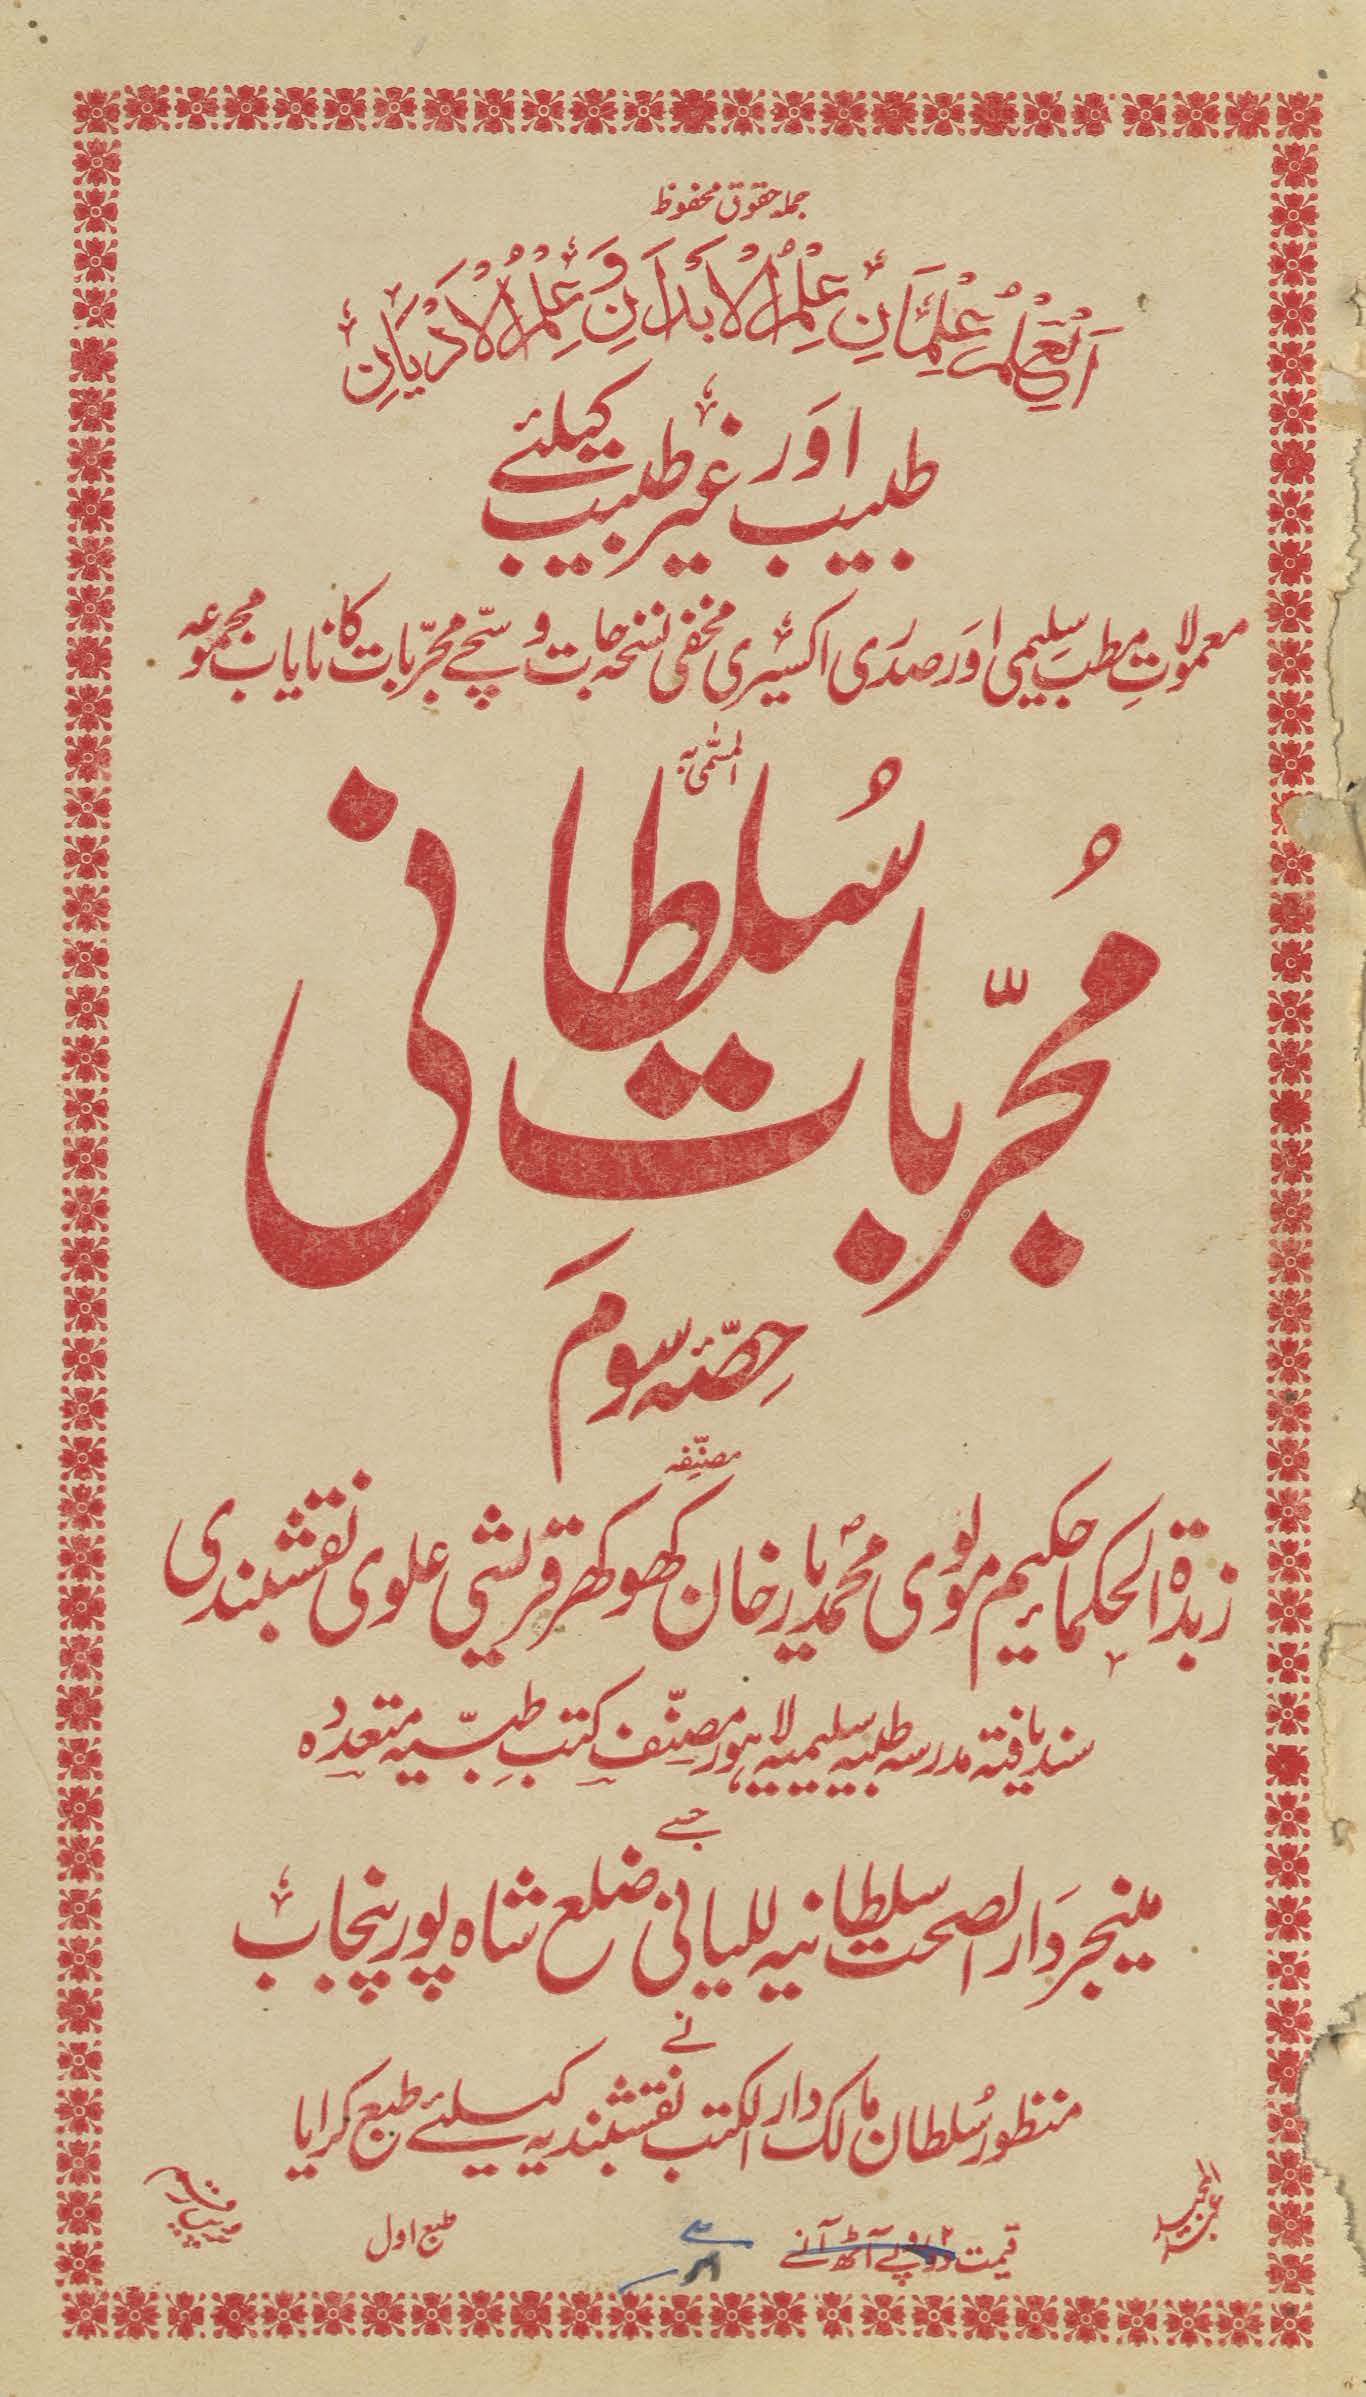 جملہ حقوق محفوظ
اَلْعِلْمُ عِلْمَانِ عِلْمُ الْاَبْدَانِ وَعِلْمُ الْاَدْيَانِ
طبیب اور غیر طبیب کیلئے
معمولاتِ مطب سلیمی اور صدری اکسیری مخفی نسخہ جات و سچے مجرّبات کا نایاب مجموعہ
المسمّٰی بہ
مُجرّبات سُلطانی
حِصّہ سوم
مصنّفہ
زبدۃ الحکما حکیم مولوی محمد یار خان کھوکھر قریشی علوی نقشبندی
سند یافتہ مدرسہ طبیہ سلیمیہ لاہور مصنّف کتب طبّیہ متعددہ
جسے
مینجر دار الصحت سلطانیہ للیانی ضلع شاہ پور پنجاب
نے
منظور سُلطان مالک دار الکتب نقشبندیہ کیلئے طبع کرایا
عبد المجید
قیمت دو روپے آٹھ آنے
طبع اول